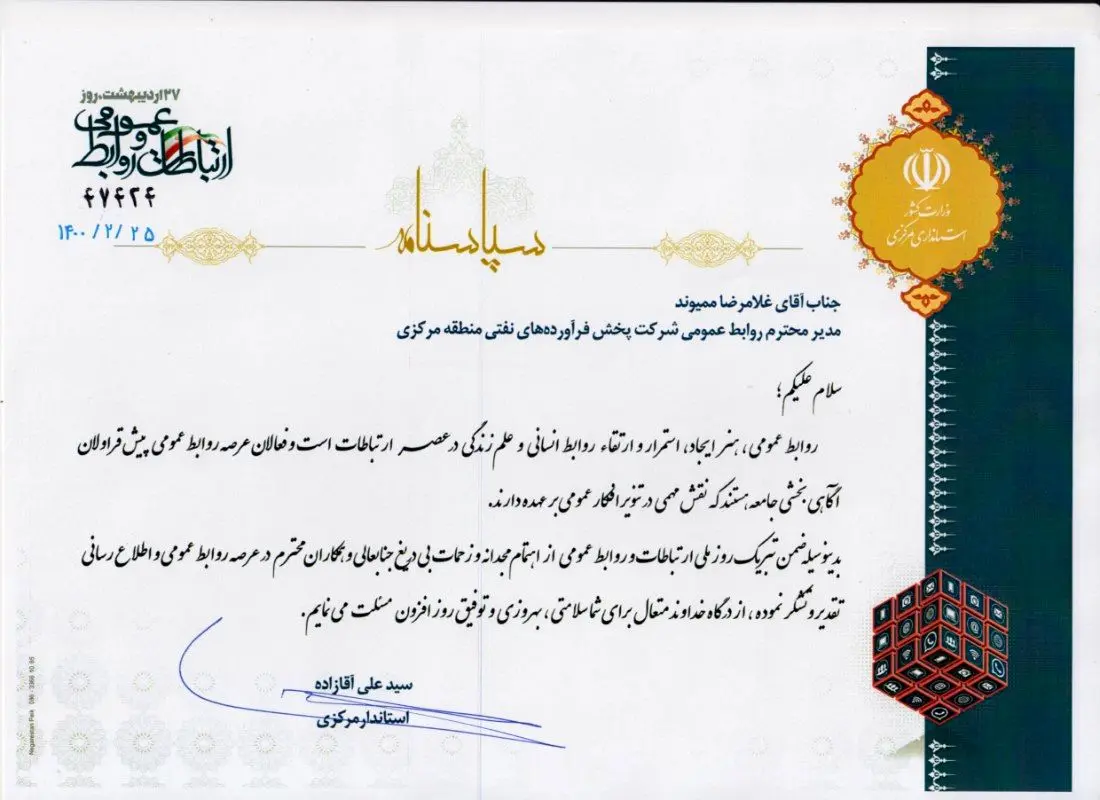 ۲۷ اردیبهشت، روز
ارتباطات و روابط عمومی
۴۷۴۲۴
۱۴۰۰/۲/۲۵
وزارت کشور
استانداری مرکزی
سپاسنامه
جناب آقای غلامرضا ممیوند
مدیر محترم روابط عمومی شرکت پخش فرآورده‌های نفتی منطقه مرکزی
سلام علیکم؛
روابط عمومی، هنر ایجاد، استمرار و ارتقاء روابط انسانی و علم زندگی در عصر ارتباطات است و فعالان عرصه روابط عمومی پیش قراولان
آگاهی بخشی جامعه هستند که نقش مهمی در تنویر افکار عمومی بر عهده دارند.
بدینوسیله ضمن تبریک روز ملی ارتباطات و روابط عمومی از اهتمام مجدانه و زحمات بی دریغ جنابعالی و همکاران محترم در عرصه روابط عمومی و اطلاع رسانی
تقدیر و تشکر نموده، از درگاه خداوند متعال برای شما سلامتی، بهروزی و توفیق روز افزون مسئلت می نمایم.
سید علی آقازاده
استاندار مرکزی